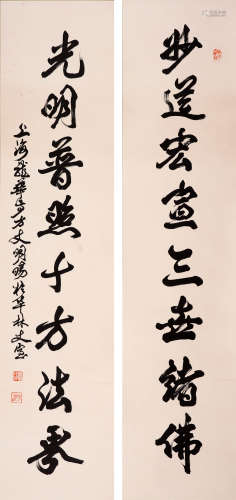 妙道宏宣三世諸佛
光明普照十方法界
上海龍華寺方丈明暘於華林丈室